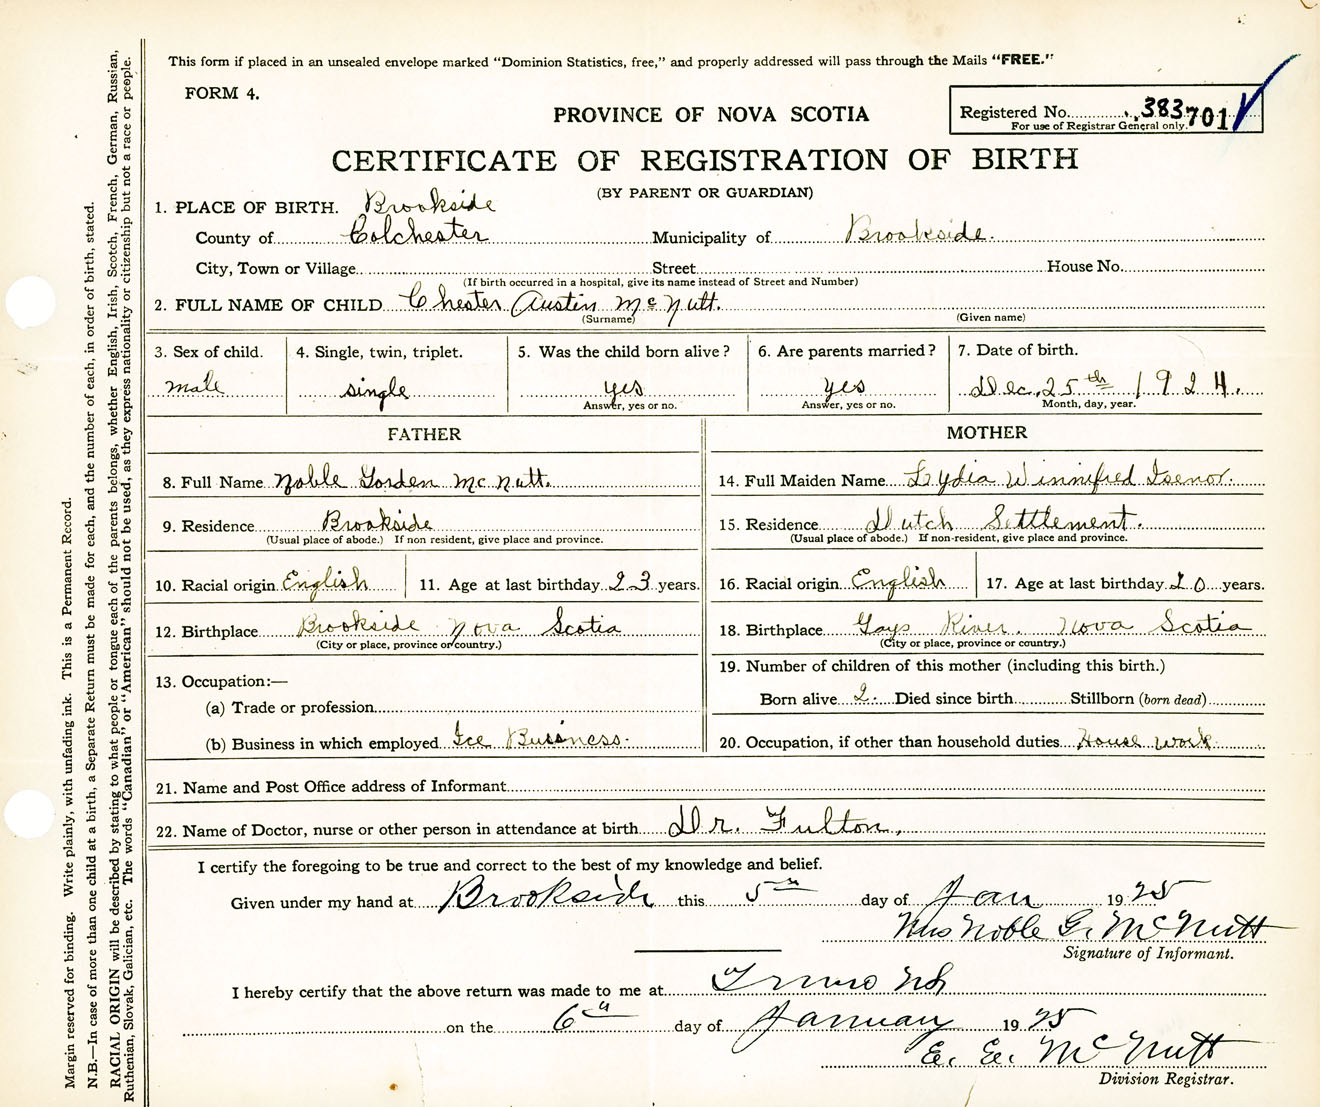 This form if placed in an unsealed envelope marked "Dominion Statistics, free," and properly addressed will pass through the Mails "FREE."
FORM 4.
PROVINCE OF NOVA SCOTIA
Registered No. 383 701
For use of Registrar General only.
CERTIFICATE OF REGISTRATION OF BIRTH
(BY PARENT OR GUARDIAN)
1. PLACE OF BIRTH. Brookside
County of Colchester Municipality of Brookside.
City, Town or Village Street House No.
(If birth occurred in a hospital, give its name instead of Street and Number)
2. FULL NAME OF CHILD Chester Austin McNutt.
(Surname) (Given name)
3. Sex of child. 4. Single, twin, triplet. 5. Was the child born alive? 6. Are parents married? 7. Date of birth.
male single yes yes Dec. 25th 1924.
Answer, yes or no. Answer, yes or no. Month, day, year.
FATHER MOTHER
8. Full Name Noble Gorden McNutt. 14. Full Maiden Name Lydia Winnifred Isenor.
9. Residence Brookside 15. Residence Dutch Settlement.
(Usual place of abode.) If non resident, give place and province. (Usual place of abode.) If non-resident, give place and province.
10. Racial origin English 11. Age at last birthday 23 years. 16. Racial origin English 17. Age at last birthday 20 years.
12. Birthplace Brookside Nova Scotia 18. Birthplace Gays River. Nova Scotia
(City or place, province or country.) (City or place, province or country.)
19. Number of children of this mother (including this birth.)
13. Occupation:—
Born alive 2. Died since birth Stillborn (born dead)
(a) Trade or profession
(b) Business in which employed Ice Buisness. 20. Occupation, if other than household duties House work.
21. Name and Post Office address of Informant
22. Name of Doctor, nurse or other person in attendance at birth Dr. Fulton.
I certify the foregoing to be true and correct to the best of my knowledge and belief.
Given under my hand at Brookside this 5th day of Jan 1925
Mrs Noble G. McNutt
Signature of Informant.
I hereby certify that the above return was made to me at Truro NS
on the 6th day of January 1925
E. E. McNutt
Division Registrar.
Margin reserved for binding. Write plainly, with unfading ink. This is a Permanent Record.
N.B.—In case of more than one child at a birth, a Separate Return must be made for each, and the number of each, in order of birth, stated.
RACIAL ORIGIN will be described by stating to what people or tongue each of the parents belongs, whether English, Irish, Scotch, French, German, Russian,
Ruthenian, Slovak, Galician, etc. The words "Canadian" or "American" should not be used, as they express nationality or citizenship but not a race or people.